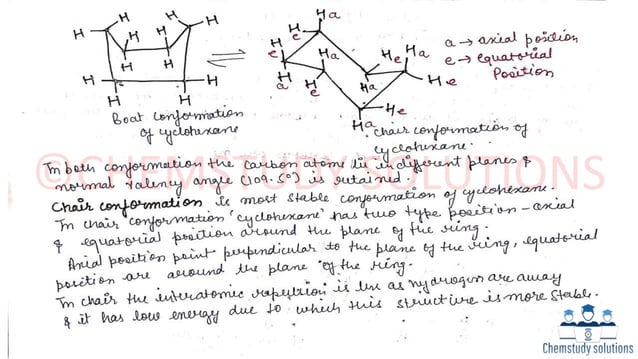 H H H H
H H H H
H H H H
Boat conformation
of cyclohexane
Ha
H e
H e
H a
H e
Ha
He Ha
Ha
H e
He
Ha
a → axial position
e → equatorial
Position
chair conformation of
cyclohexane.
In both conformation the carbon atoms lie in different planes &
normal valency angle (109.5°) is retained.
Chair conformation is most stable conformation of cyclohexane.
In chair conformation 'cyclohexane' has two type position - axial
& equatorial position around the plane of the ring.
Axial position point perpendicular to the plane of the ring, equatorial
position are around the plane of the ring.
In chair the interatomic repulsion is less as hydrogen are away
& it has low energy due to which this structure is more stable.
©CHEMSTUDY SOLUTIONS
Chemstudy solutions